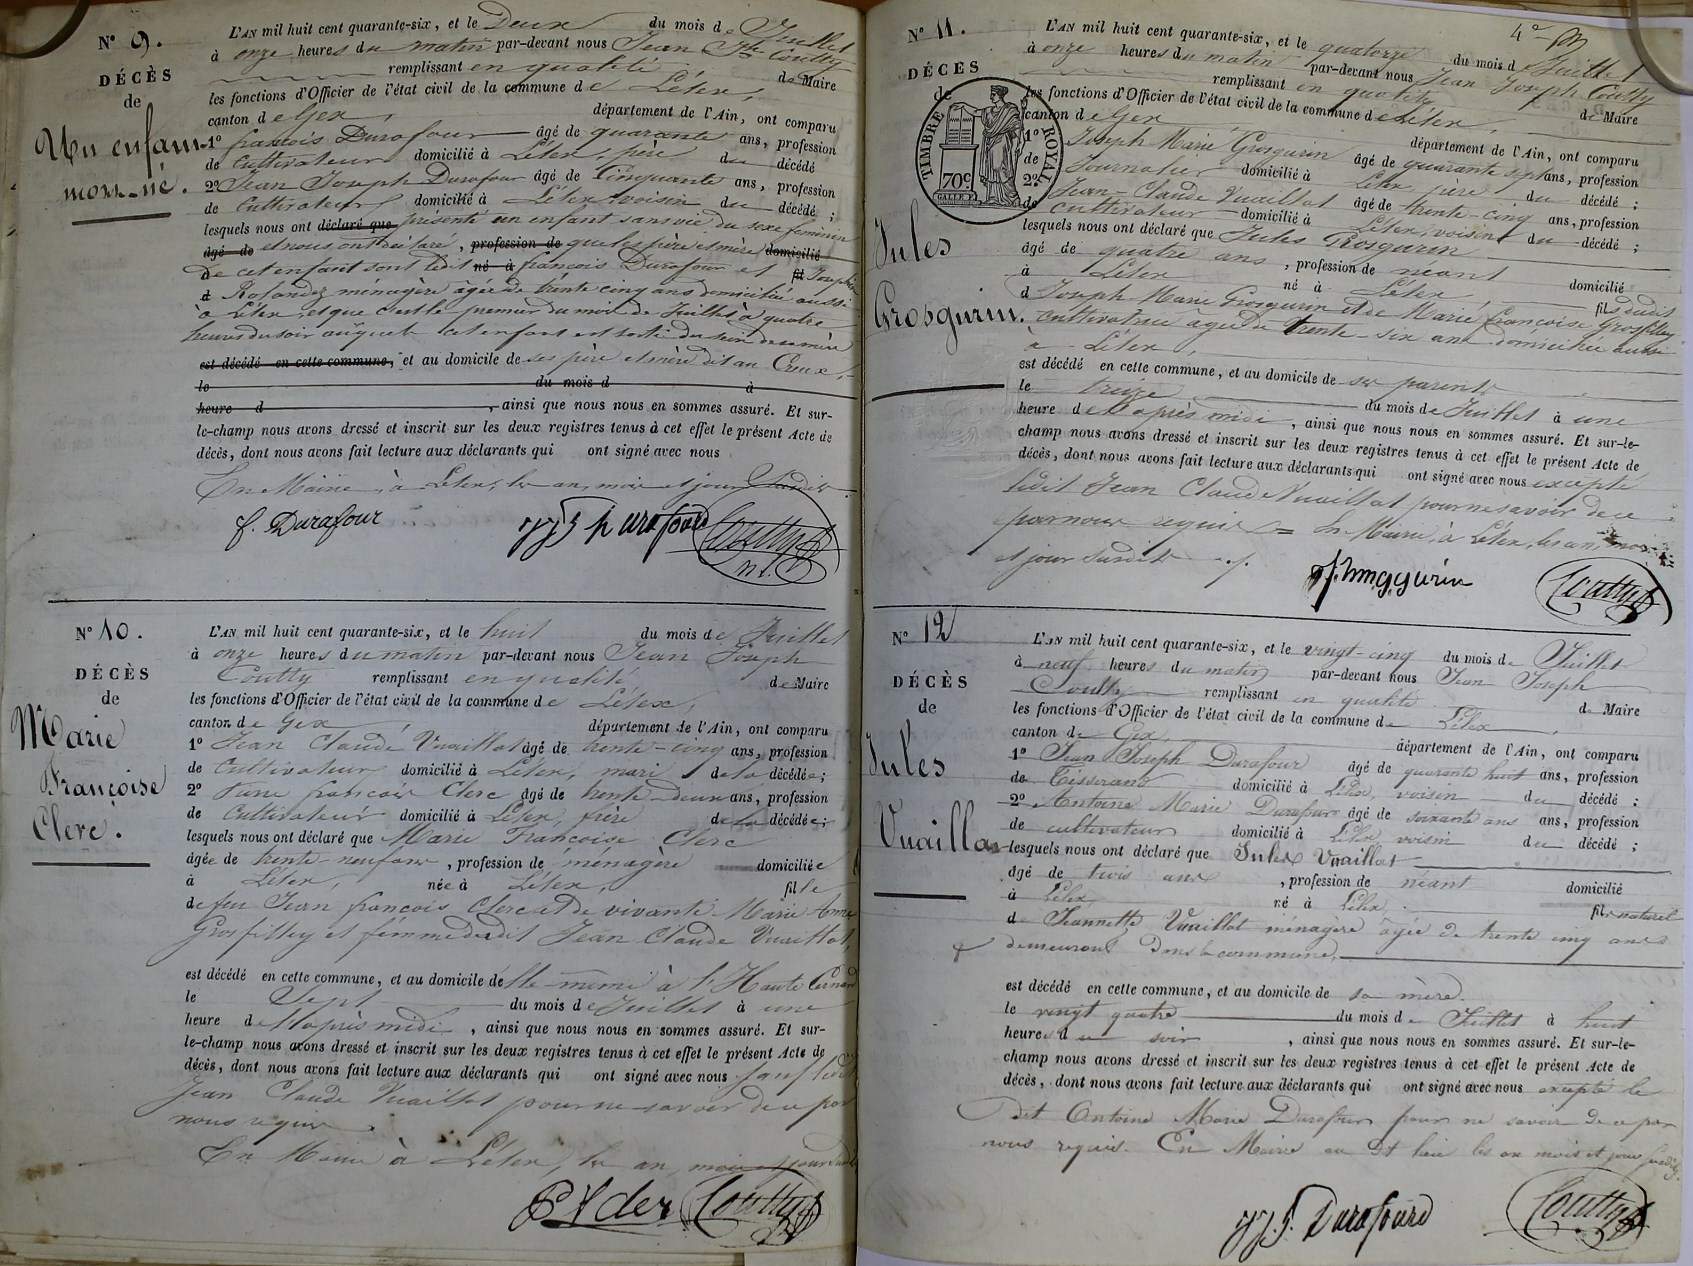 N° 9.
DÉCÈS
de
Un enfant
mort-né.
L'AN mil huit cent quarante-six, et le Deux du mois de Juillet
à onze heures du matin par-devant nous Jean Jph Coutty
remplissant en qualité de Maire
les fonctions d'Officier de l'état civil de la commune de Lélex,
canton de Gex, département de l'Ain, ont comparu
1° françois Durafour âgé de quarante ans, profession
de Cultivateur domicilié à Lélex, père du décédé
2° Jean Joseph Durafour âgé de Cinquante ans, profession
de Cultivateur domicilié à Lélex voisin du décédé ;
lesquels nous ont déclaré que présenté un enfant sans vie du sexe feminin
âgé de et nous ont déclaré, profession de que les père et mère domicilié
de cet enfant sont ledit né à françois Durafour et fil Josephte
d Rolandez ménagère âgée de trente cinq ans domiciliée aussi
à Lélex, et que c'est le premier du mois de Juillet à quatre
heures du soir auquel cet enfant est sorti du sein de sa mère
est décédé en cette commune, et au domicile de ses père et mère dit au Creux,
le du mois d à
heure d , ainsi que nous nous en sommes assuré. Et sur-
le-champ nous avons dressé et inscrit sur les deux registres tenus à cet effet le présent Acte de
décès, dont nous avons fait lecture aux déclarants qui ont signé avec nous
En Mairie, à Lélex, les an, mois et jour Susdits
f. Durafour J J h Durafour Coutty
N° 10.
DÉCÈS
de
Marie
Françoise
Clerc.
L'AN mil huit cent quarante-six, et le huit du mois de Juillet
à onze heures du matin par-devant nous Jean Joseph
Coutty remplissant en qualité de Maire
les fonctions d'Officier de l'état civil de la commune de Lélex,
canton de Gex, département de l'Ain, ont comparu
1° Jean Claude Vuaillat âgé de trente-cinq ans, profession
de Cultivateur domicilié à Lélex, mari de la décédée ;
2° Jean françois Clerc âgé de trente-deux ans, profession
de Cultivateur domicilié à Lélex, frère de la décédée ;
lesquels nous ont déclaré que Marie Françoise Clerc
âgée de trente-neuf ans, profession de ménagère domiciliée
à Lélex, née à Lélex, fille
de feu Jean françois Clerc et de vivante Marie Anne
Grosfilley et femme dudit Jean Claude Vuaillat,
est décédé en cette commune, et au domicile d'elle même à l'Haute
le Sept du mois de Juillet à une
heure de l'après midi, ainsi que nous nous en sommes assuré. Et sur-
le-champ nous avons dressé et inscrit sur les deux registres tenus à cet effet le présent Acte de
décès, dont nous avons fait lecture aux déclarants qui ont signé avec nous sauf ledit
Jean Claude Vuaillat pour ne savoir de ce par
nous requis.
En Mairie à Lélex, les an, mois et jour susdits
Coutty
N° 11.
DÉCÈS
de
TIMBRE ROYAL
70c.
Jules
Grosgurin.
L'AN mil huit cent quarante-six, et le quatorze du mois de Juillet
à onze heures du matin par-devant nous Jean Joseph Coutty
remplissant en qualité de Maire
les fonctions d'Officier de l'état civil de la commune de Lélex,
canton de Gex, département de l'Ain, ont comparu
1° Joseph Marie Grosgurin âgé de quarante sept ans, profession
de Journalier domicilié à Lélex, père du décédé ;
2° Jean-Claude Vuaillat âgé de trente-cinq ans, profession
de cultivateur domicilié à Lélex, voisin du décédé ;
lesquels nous ont déclaré que Jules Grosgurin
âgé de quatre ans, profession de néant domicilié
à Lélex né à Lélex fils dudit
d Joseph Marie Grosgurin et de Marie françoise Grosfilley
cultivatrice âgée de trente-six ans domiciliée aussi
à Lélex,
est décédé en cette commune, et au domicile de ses parents
le treize du mois de Juillet à une
heure de l'après midi, ainsi que nous nous en sommes assuré. Et sur-le-
champ nous avons dressé et inscrit sur les deux registres tenus à cet effet le présent Acte de
décès, dont nous avons fait lecture aux déclarants qui ont signé avec nous excepté
ledit Jean Claude Vuaillat pour ne savoir de ce
par nous requis = En Mairie, à Lélex, les an, mois
et jour susdits
Coutty
N° 12
DÉCÈS
de
Jules
Vuaillat
L'AN mil huit cent quarante-six, et le vingt-cinq du mois de Juillet
à neuf heures du matin par-devant nous Jean Joseph
Coutty remplissant en qualité de Maire
les fonctions d'Officier de l'état civil de la commune de Lélex,
canton de Gex, département de l'Ain, ont comparu
1° Jean Joseph Durafour âgé de quarante huit ans, profession
de Tisserand domicilié à Lélex, voisin du décédé ;
2° Antoine Marie Durafour âgé de soixante ans ans, profession
de cultivateur domicilié à Lélex voisin du décédé ;
lesquels nous ont déclaré que Jules Vuaillat
âgé de trois ans, profession de néant domicilié
à Lélex né à Lélex fils naturel
de Jeannette Vuaillat ménagère âgée de trente cinq ans
demeurant dans la commune,
est décédé en cette commune, et au domicile de sa mère.
le vingt quatre du mois de Juillet à huit
heures du soir, ainsi que nous nous en sommes assuré. Et sur-le-
champ nous avons dressé et inscrit sur les deux registres tenus à cet effet le présent Acte de
décès, dont nous avons fait lecture aux déclarants qui ont signé avec nous excepté le
dit Antoine Marie Durafour pour ne savoir de ce par
nous requis. En Mairie au dit lieu les an mois et jour susdits.
J J. Durafourd Coutty